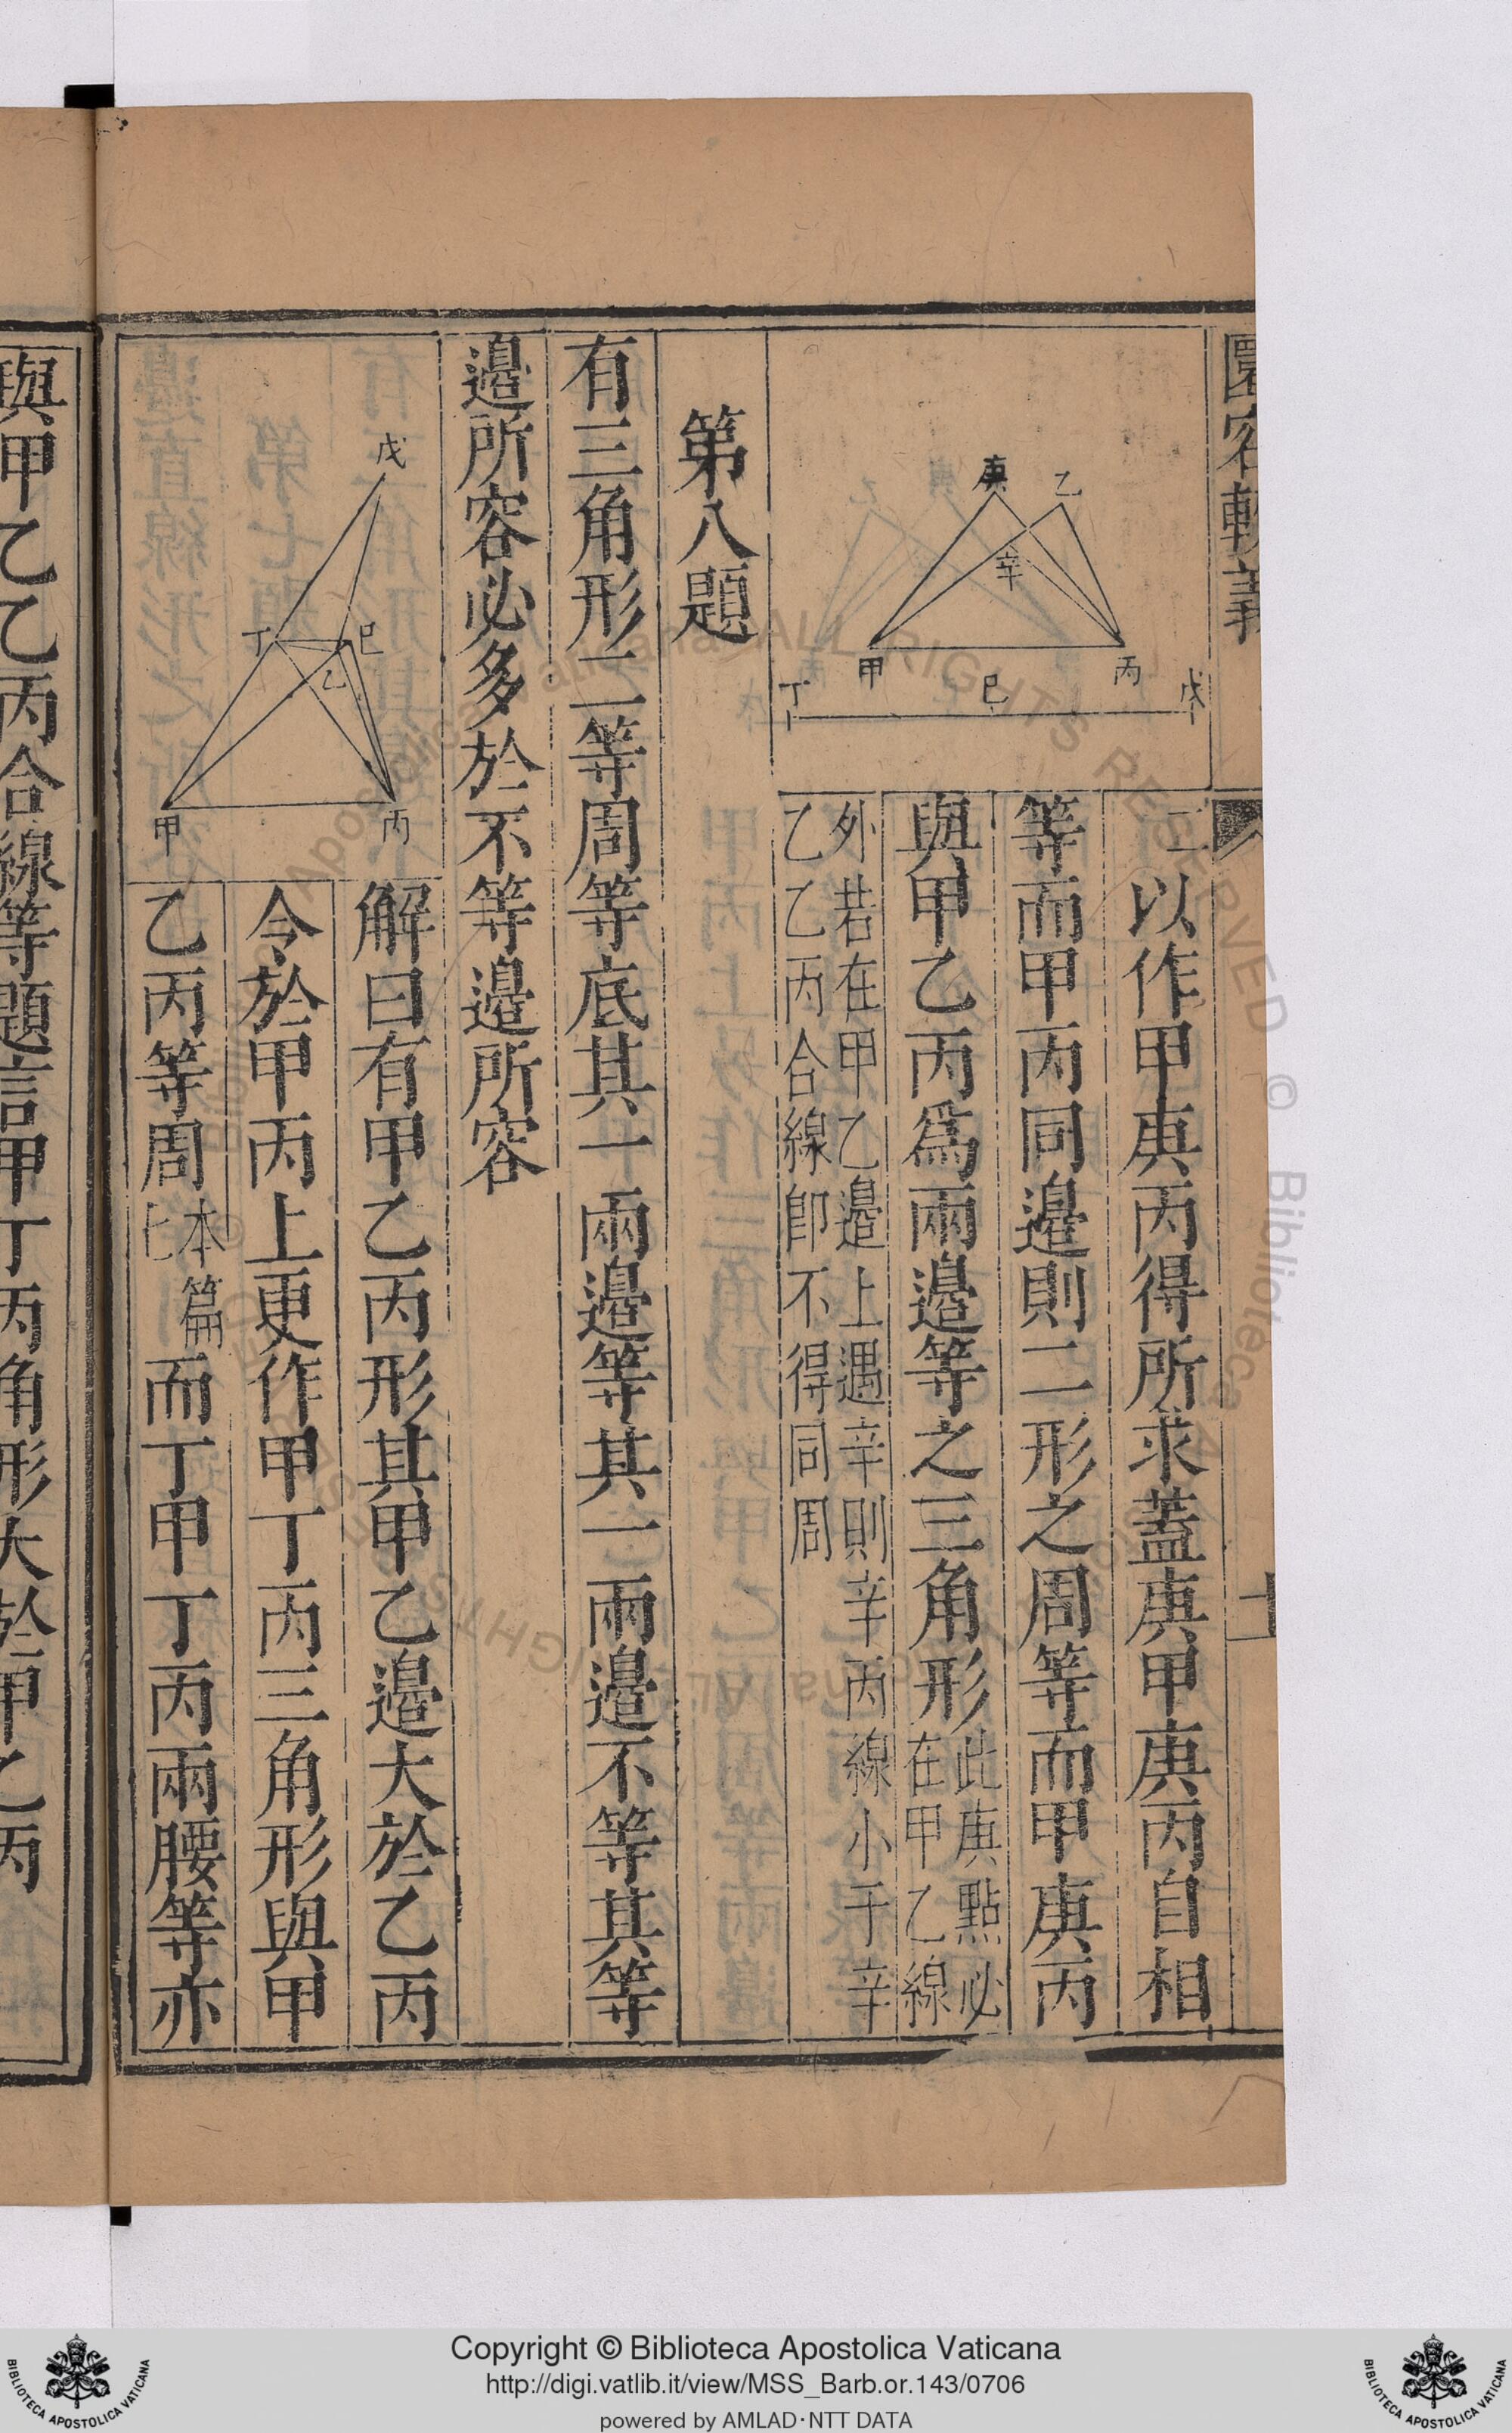 圜容較義
庚
乙
辛
甲
丙
丁
已
戊
二以作甲庚丙得所求蓋庚甲庚丙自相
等而甲丙同邊則二形之周等而甲庚丙
與甲乙丙爲兩邊等之三角形此庚點必
在甲乙線
外若在甲乙邊上遇辛則辛丙線小于辛
乙乙丙合線卽不得同周
第八題
有三角形二等周等底其一兩邊等其一兩邊不等其等
邊所容必多於不等邊所容
戊
丁
已
乙
甲
丙
解曰有甲乙丙形其甲乙邊大於乙丙
令於甲丙上更作甲丁丙三角形與甲
乙丙等周本篇
七
而丁甲丁丙兩腰等亦
與甲乙乙丙合線等題言甲丁丙角形大於甲乙丙
Copyright © Biblioteca Apostolica Vaticana
http://digi.vatlib.it/view/MSS_Barb.or.143/0706
powered by AMLAD·NTT DATA
BIBLIOTECA APOSTOLICA VATICANA
BIBLIOTECA APOSTOLICA VATICANA